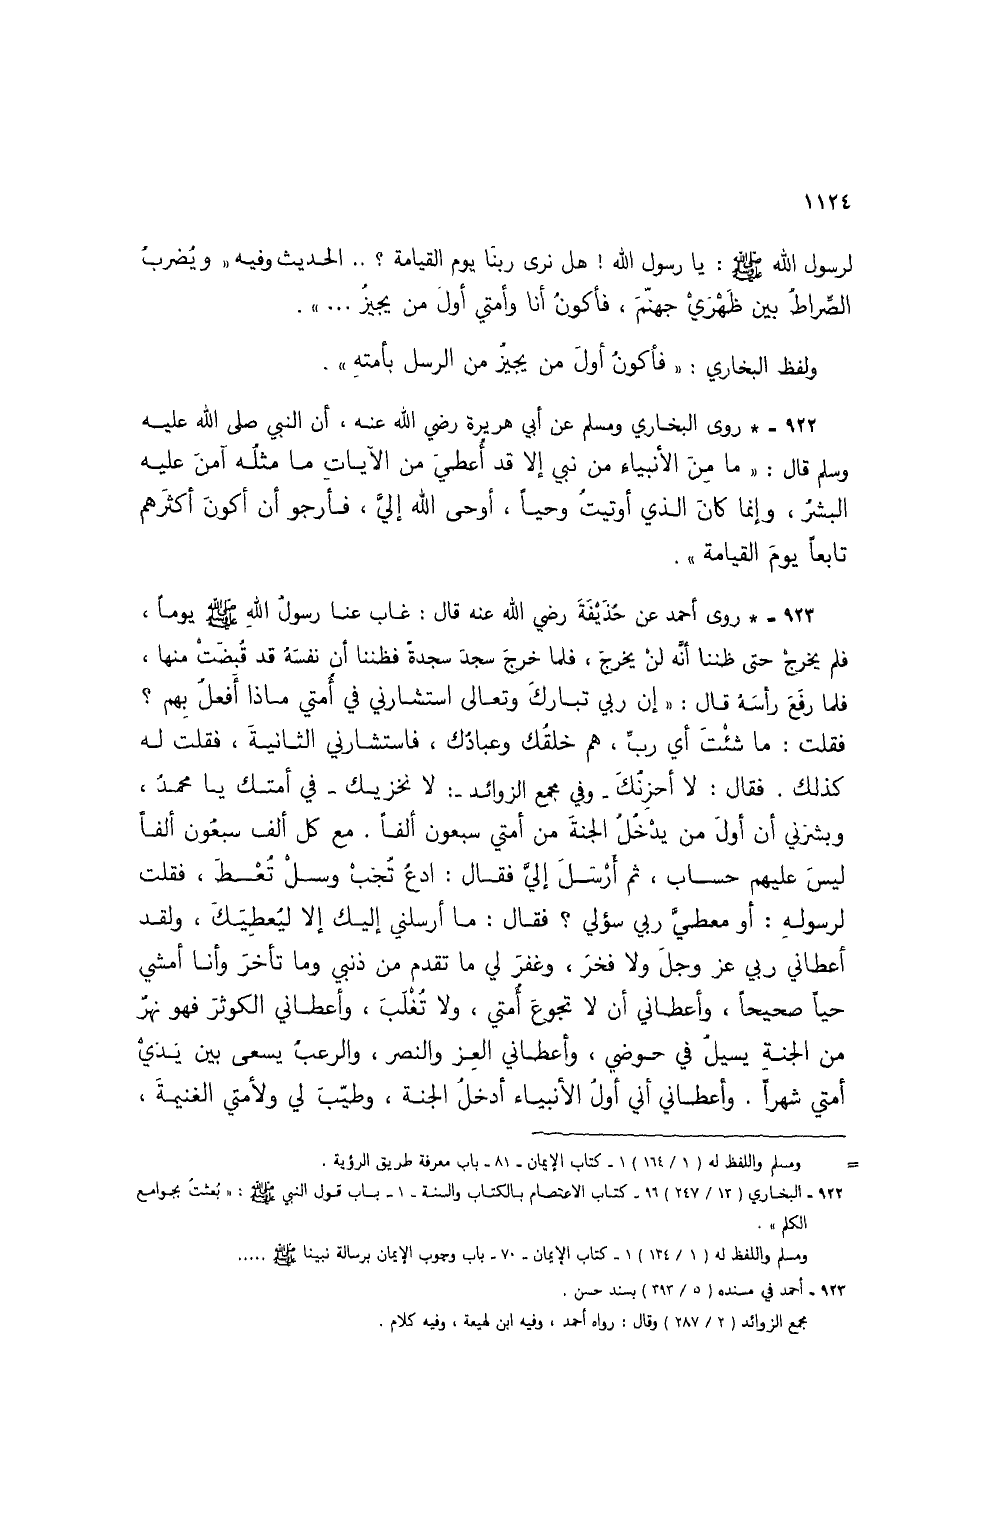 ١١٢٤
لرسول الله ﷺ : يا رسول الله ! هل نرى ربنَا يوم القيامة ؟ .. الحديث وفيه « ويُضربُ
الصِّراطُ بين ظَهْرَيْ جهنّمَ ، فأكونُ أنا وأمتي أولَ من يجيزُ ... » .
ولفظ البخاري : « فأكونُ أولَ من يجيزُ من الرسل بأمتهِ » .
٩٢٢ - * روى البخاري ومسلم عن أبي هريرة رضي الله عنه ، أن النبي صلى الله عليه
وسلم قال : « ما مِنَ الأنبياء من نبي إلا قد أُعطيَ من الآياتِ ما مثلُه آمنَ عليه
البشرُ ، وإنما كانَ الذي أوتيتُ وحياً ، أوحى الله إليَّ ، فأرجو أن أكونَ أكثرَهم
تابعاً يومَ القيامة » .
٩٢٣ - * روى أحمد عن حُذَيْفَةَ رضي الله عنه قال : غاب عنا رسولُ اللهِ ﷺ يوماً ،
فلم يخرجْ حتى ظننا أنَّه لنْ يخرجَ ، فلما خرجَ سجدَ سجدةً فظننا أن نفسَهُ قد قُبِضَتْ منها ،
فلما رفَعَ رأسَهُ قال : « إن ربي تباركَ وتعالى استشارني في أُمتي ماذا أَفعلُ بهم ؟
فقلت : ما شئْتَ أي ربِّ ، هم خلقُك وعبادُك ، فاستشارني الثانيةَ ، فقلت له
كذلك . فقال : لا أحزِنُكَ - وفي مجمع الزوائد -: لا نخزيك - في أمتك يا محمدُ ،
وبشرَني أن أولَ من يدْخُلُ الجنةَ من أمتي سبعون ألفاً . مع كل ألف سبعُون ألفاً
ليسَ عليهم حساب ، ثم أَرْسَلَ إليَّ فقال : ادعُ تُجَبْ وسلْ تُعْطَ ، فقلت
لرسولهِ : أو معطيَّ ربي سؤلي ؟ فقال : ما أرسلني إليك إلا ليُعطِيَكَ ، ولقد
أعطاني ربي عز وجلَ ولا فخرَ ، وغفرَ لي ما تقدم من ذنبي وما تأخرَ وأنا أمشي
حياً صحيحاً ، وأعطاني أن لا تجوعَ أُمتي ، ولا تُغْلَبَ ، وأعطاني الكوثرَ فهو نهرٌ
من الجنةِ يسيلُ في حوضي ، وأعطاني العِز والنصر ، والرعبُ يسعى بين يَدَيْ
أمتي شهراً . وأعطاني أني أولُ الأنبياء أدخلُ الجنة ، وطيّبَ لي ولأمتي الغنيمةَ ،
= ومسلم واللفظ له ( ١ / ١٦٤ ) ١ - كتاب الإيمان - ٨١ - باب معرفة طريق الرؤية .
٩٢٢ - البخاري ( ١٣ / ٢٤٧ ) ٩٦ - كتاب الاعتصام بالكتاب والسنة - ١ - باب قول النبي ﷺ : « بُعثتُ بجوامع
الكلم » .
ومسلم واللفظ له ( ١ / ١٣٤ ) ١ - كتاب الإيمان - ٧٠ - باب وجوب الإيمان برسالة نبينا ﷺ .....
٩٢٣ - أحمد في مسنده ( ٥ / ٣٩٣ ) بسند حسن .
مجمع الزوائد ( ٢ / ٢٨٧ ) وقال : رواه أحمد ، وفيه ابن لهيعة ، وفيه كلام .